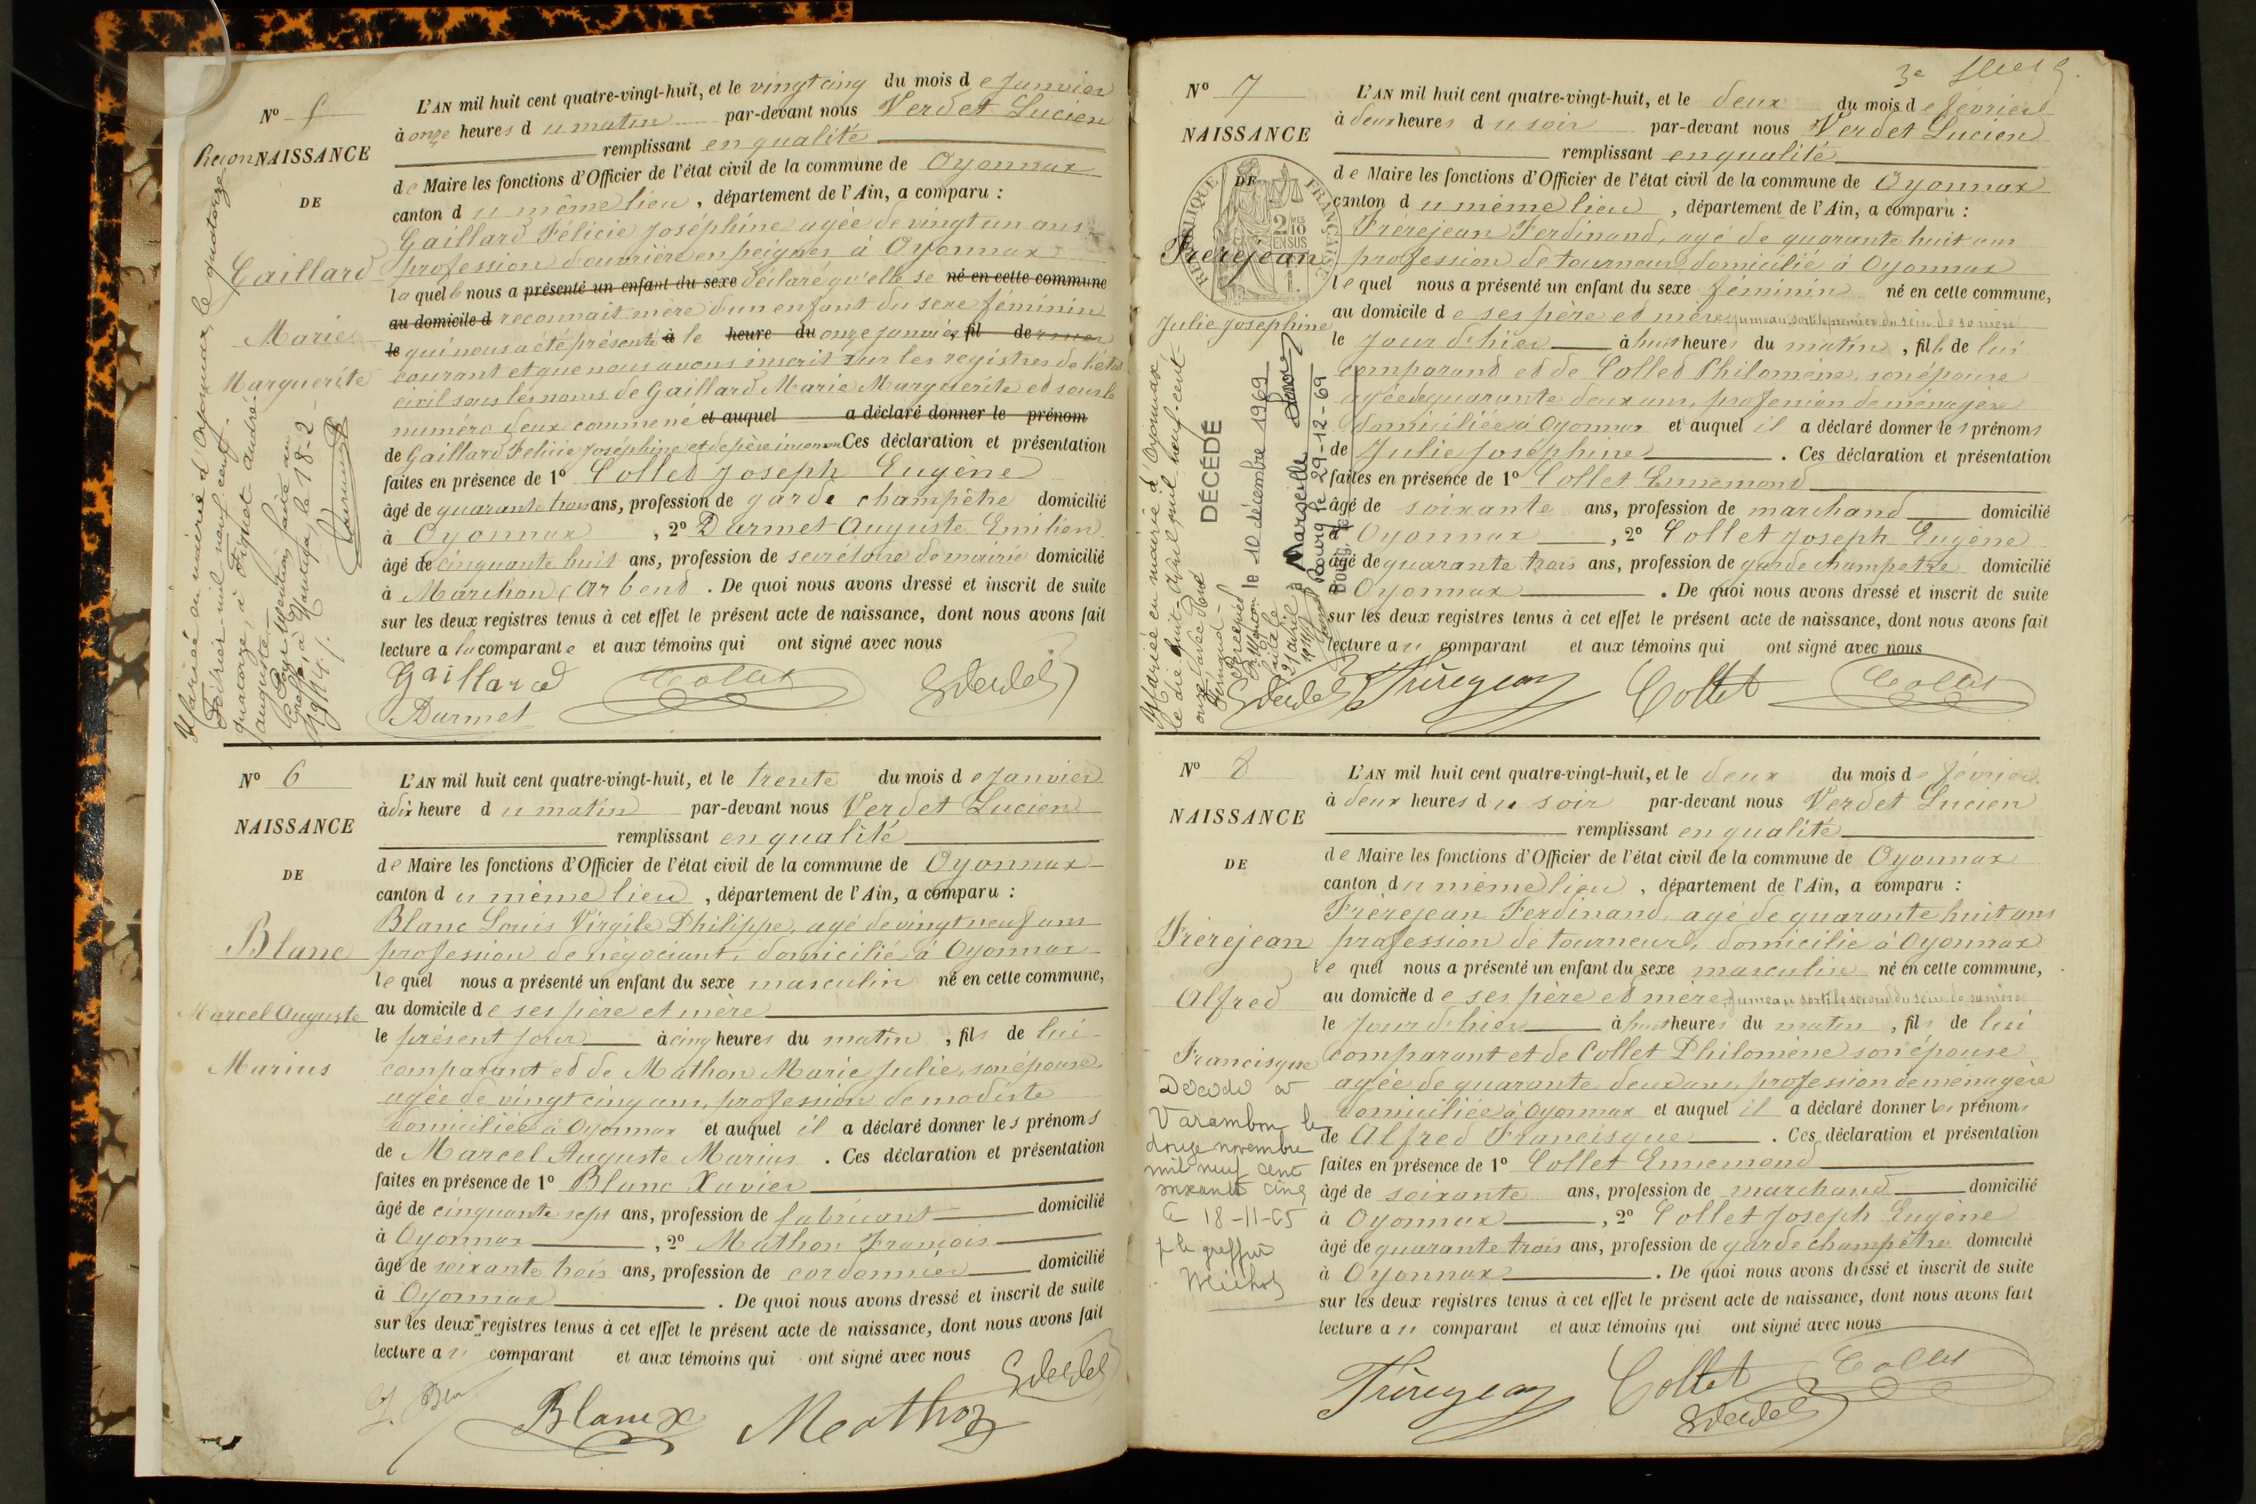 N° 5
ReconNAISSANCE
DE
Gaillard
Marie
Marguerite
Mariée en mairie d'Oyonnax, le quatorze
février mil neuf cent
quatorze, à Figuet André
Auguste.
L'AN mil huit cent quatre-vingt-huit, et le vingt cinq du mois de Janvier
à onze heures du matin par-devant nous Verdet Lucien
remplissant en qualité
de Maire les fonctions d'Officier de l'état civil de la commune de Oyonnax
canton du même lieu, département de l'Ain, a comparu :
Gaillard Félicie Joséphine agée de vingt un ans
profession d'ouvrière en peignes, à Oyonnax
laquelle nous a présenté un enfant du sexe déclaré qu'elle se né en cette commune
au domicile d reconnait mère d'un enfant du sexe féminin
le qui nous a été présenté à le heure du onze janvier fil de
courant et que nous avons inscrit sur les registres de l'état
civil sous les noms de Gaillard Marie Marguerite et sous le
numéro deux comme né et auquel a déclaré donner le prénom
de Gaillard Félicie Joséphine et de père inconnu Ces déclaration et présentation
faites en présence de 1° Collet Joseph Eugène
âgé de quarante trois ans, profession de garde champêtre domicilié
à Oyonnax, 2° Darmet Auguste Emilien
âgé de cinquante huit ans, profession de secrétaire de mairie domicilié
à Marchon, Arbend. De quoi nous avons dressé et inscrit de suite
sur les deux registres tenus à cet effet le présent acte de naissance, dont nous avons fait
lecture a la comparante et aux témoins qui ont signé avec nous
Gaillard Collet Verdet
Darmet
N° 6
NAISSANCE
DE
Blanc
Marcel Auguste
Marius
L'AN mil huit cent quatre-vingt-huit, et le trente du mois de Janvier
à dix heure du matin par-devant nous Verdet Lucien
remplissant en qualité
de Maire les fonctions d'Officier de l'état civil de la commune de Oyonnax
canton du même lieu, département de l'Ain, a comparu :
Blanc Louis Virgile Philippe, agé de vingt neuf ans
profession de négociant, domicilié à Oyonnax
lequel nous a présenté un enfant du sexe masculin né en cette commune,
au domicile de ses père et mère
le présent jour à cinq heures du matin, fils de lui
comparant et de Mathon Marie Julie, son épouse
agée de vingt cinq ans, profession de modiste
domiciliée à Oyonnax et auquel il a déclaré donner les prénoms
de Marcel Auguste Marius. Ces déclaration et présentation
faites en présence de 1° Blanc Xavier
âgé de cinquante sept ans, profession de fabricant domicilié
à Oyonnax, 2° Mathon François
âgé de soixante trois ans, profession de cordonnier domicilié
à Oyonnax. De quoi nous avons dressé et inscrit de suite
sur les deux registres tenus à cet effet le présent acte de naissance, dont nous avons fait
lecture au comparant et aux témoins qui ont signé avec nous
Verdet
Blanc X Mathon
N° 7
NAISSANCE
DE
RÉPUBLIQUE FRANÇAISE
2/10 EN SUS
Frèrejean
Julie Joséphine
Mariée en mairie d'Oyonnax
le dix huit Avril mil neuf cent
onze avec
DÉCÉDÉ
le 10 décembre 1969
à Marseille
Bourg le 29-12-69
3e
L'AN mil huit cent quatre-vingt-huit, et le deux du mois de février
à deux heures du soir par-devant nous Verdet Lucien
remplissant en qualité
de Maire les fonctions d'Officier de l'état civil de la commune de Oyonnax
canton du même lieu, département de l'Ain, a comparu :
Frèrejean Ferdinand, agé de quarante huit ans
profession de tourneur, domicilié à Oyonnax
lequel nous a présenté un enfant du sexe féminin né en cette commune,
au domicile de ses père et mère, jumeau sorti le premier du sein de sa mère
le jour d'hier à huit heures du matin, fille de lui
comparant et de Collet Philomène, son épouse
agée de quarante deux ans, profession de ménagère
domiciliée à Oyonnax et auquel il a déclaré donner les prénoms
de Julie Joséphine. Ces déclaration et présentation
faites en présence de 1° Collet Ennemond
âgé de soixante ans, profession de marchand domicilié
à Oyonnax, 2° Collet Joseph Eugène
âgé de quarante trois ans, profession de garde champetre domicilié
à Oyonnax. De quoi nous avons dressé et inscrit de suite
sur les deux registres tenus à cet effet le présent acte de naissance, dont nous avons fait
lecture au comparant et aux témoins qui ont signé avec nous
Verdet Frèrejean Collet Collet
N° 8
NAISSANCE
DE
Frèrejean
Alfred
Francisque
Décédé à
Varambon le
douze novembre
mil neuf cent
soixante cinq
le 18-11-65
p le greffier
L'AN mil huit cent quatre-vingt-huit, et le deux du mois de février
à deux heures du soir par-devant nous Verdet Lucien
remplissant en qualité
de Maire les fonctions d'Officier de l'état civil de la commune de Oyonnax
canton du même lieu, département de l'Ain, a comparu :
Frèrejean Ferdinand, agé de quarante huit ans
profession de tourneur, domicilié à Oyonnax
lequel nous a présenté un enfant du sexe masculin né en cette commune,
au domicile de ses père et mère, jumeau sorti le second du sein de sa mère
le jour d'hier à huit heures du matin, fils de lui
comparant et de Collet Philomène son épouse
agée de quarante deux ans, profession de ménagère
domiciliée à Oyonnax et auquel il a déclaré donner les prénoms
de Alfred Francisque. Ces déclaration et présentation
faites en présence de 1° Collet Ennemond
âgé de soixante ans, profession de marchand domicilié
à Oyonnax, 2° Collet Joseph Eugène
âgé de quarante trois ans, profession de garde champêtre domicilié
à Oyonnax. De quoi nous avons dressé et inscrit de suite
sur les deux registres tenus à cet effet le présent acte de naissance, dont nous avons fait
lecture au comparant et aux témoins qui ont signé avec nous
Frèrejean Collet Collet
Verdet